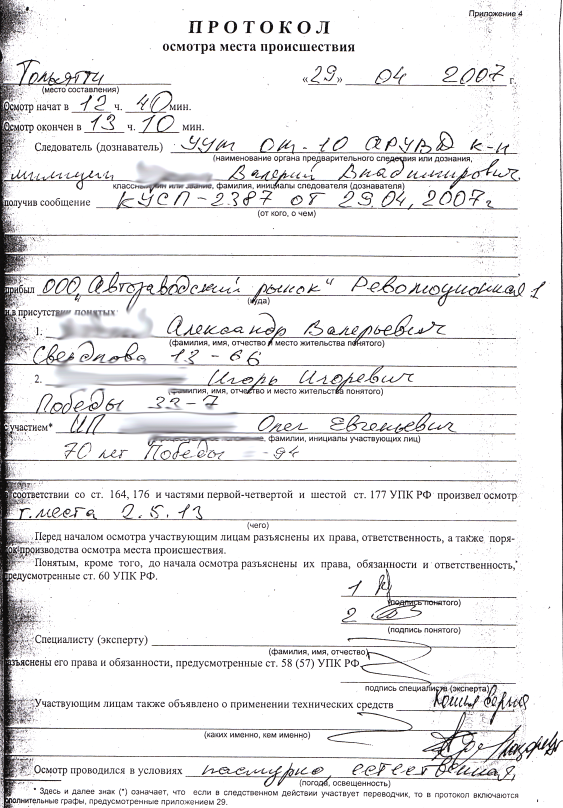 Приложение 4
ПРОТОКОЛ
осмотра места происшествия
Тольятти «29» 04 2007 г.
(место составления)
Осмотр начат в 12 ч. 40 мин.
Осмотр окончен в 13 ч. 10 мин.
Следователь (дознаватель) УУМ ОМ-10 АРУВД к-н
(наименование органа предварительного следствия или дознания,
милиции Валерий Владимирович
классный чин или звание, фамилия, инициалы следователя (дознавателя)
получив сообщение КУСП-2387 от 29.04.2007г
(от кого, о чем)
прибыл ООО „Автозаводский рынок" Революционная 1
(куда)
и в присутствии понятых:
1. Александр Валерьевич
(фамилия, имя, отчество и место жительства понятого)
Свердлова 13-66
2. Игорь Игоревич
(фамилия, имя, отчество и место жительства понятого)
Победы 33-7
с участием* ИП Олег Евгеньевич
, фамилии, инициалы участвующих лиц)
70 лет Победы -94
в соответствии со ст. 164, 176 и частями первой-четвертой и шестой ст. 177 УПК РФ произвел осмотр
т. места 2.5.13
(чего)
Перед началом осмотра участвующим лицам разъяснены их права, ответственность, а также поря-
док производства осмотра места происшествия.
Понятым, кроме того, до начала осмотра разъяснены их права, обязанности и ответственность,
предусмотренные ст. 60 УПК РФ.
1
(подпись понятого)
2
(подпись понятого)
Специалисту (эксперту)
(фамилия, имя, отчество)
разъяснены его права и обязанности, предусмотренные ст. 58 (57) УПК РФ
подпись специалиста (эксперта)
Участвующим лицам также объявлено о применении технических средств Копия верна
(каких именно, кем именно)
Осмотр проводился в условиях пасмурно, естественная,
(погода, освещенность)
* Здесь и далее знак (*) означает, что если в следственном действии участвует переводчик, то в протокол включаются
дополнительные графы, предусмотренные приложением 29.